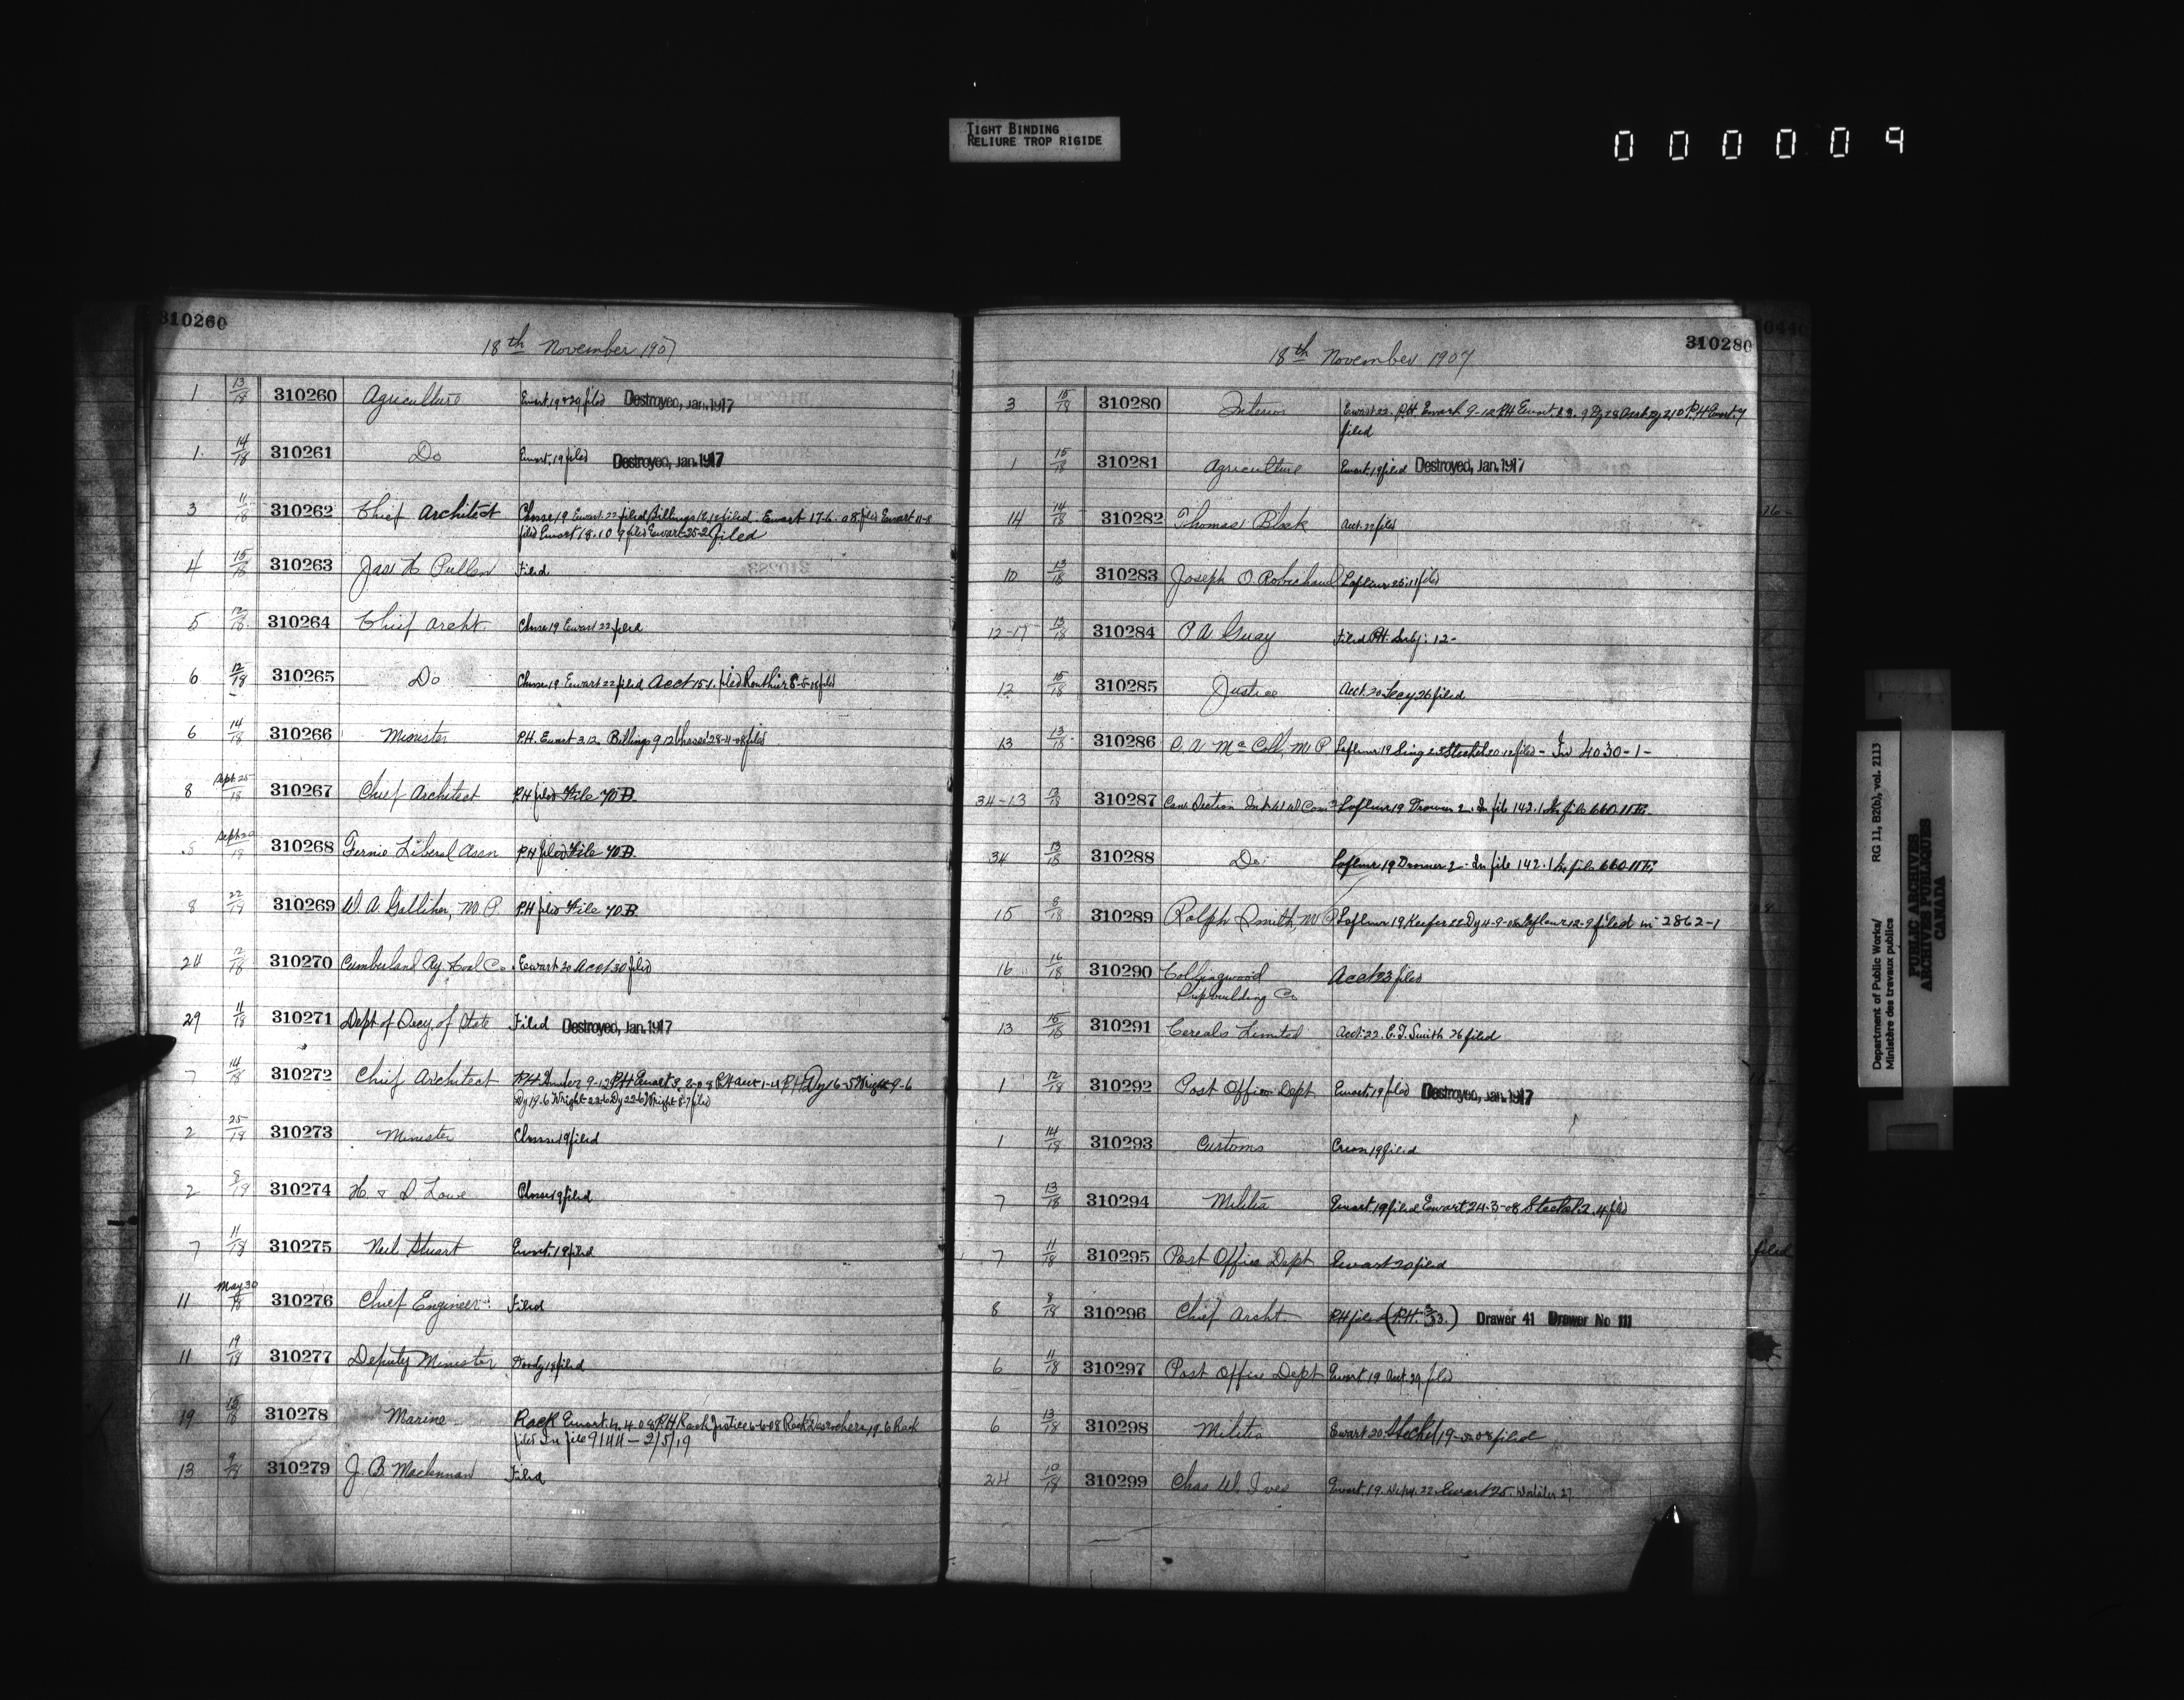 TIGHT BINDING
RELIURE TROP RIGIDE
000009
310260
18th November 1907
1 13/18 310260 Agriculture Ewart 19 & 29 filed Destroyed, Jan. 1917
1 14/18 310261 Do Ewart 19 filed Destroyed, Jan. 1917
3 11/18 310262 Chief Architect Chasse 19 Ewart 22 filed Billings 12/12 filed Ewart 17-6-08 filed Ewart 11-8
filed Ewart 18-10-9 filed Ewart 25-2 filed
4 15/18 310263 Jas H Pullen Filed
5 12/18 310264 Chief Archt. Chasse 19 Ewart 22 filed
6 12/18 310265 Do Chasse 19 Ewart 22 filed Acct 15-1 filed 8-5-18 filed
6 14/18 310266 Minister P.H. Ewart 3.12 Billings 9.12 Chasse 28-4-08 filed
8 Sept. 25/18 310267 Chief Architect P.H filed File 70 B.
8 310268 Fernie Liberal Assn P.H filed File 70 B.
8 22/19 310269 W. A. Galliher, M. P. P.H filed File 70 B.
24 12/18 310270 Cumberland Ry & Coal Co. Ewart 20 Acct 30 filed
29 11/18 310271 Dept of Secy. of State Filed Destroyed, Jan. 1917
7 14/18 310272 Chief Architect P.H Hunter 9-12 P.H Ewart 3-2-08 Dy 16-5 Wright 9-6
Dy 19-6 Wright 22-6 Dy 22-6 Wright 8-7 filed
2 25/19 310273 Minister Chasse 19 filed
2 8/19 310274 H. & D Lowe Chasse 19 filed
7 11/18 310275 Neil Stuart Ewart 19 filed
11 May 30/18 310276 Chief Engineer Filed
11 19/18 310277 Deputy Minister Doody 18 filed
19 15/18 310278 Marine Rack Ewart 4-4-08 P.H Rack Justice 6-6-08 Rack Desrochers 19-6 Rack
filed In file 9144 - 2/5/19
13 9/18 310279 J. B. Maclennan Filed
310280
18th November 1907
3 15/18 310280 Interior Ewart 22. P.H. Ewart 9-12 P.H Ewart
filed
1 15/18 310281 Agriculture Ewart 19 filed Destroyed, Jan. 1917
14 14/18 310282 Thomas Black Acct. 22 filed
10 13/18 310283 Joseph O Robichaud Lafleur 25-11 filed
12-17 13/18 310284 P A Guay Filed P.H. Subj: 12-
12 15/18 310285 Justice Acct. 20 Secy 26 filed
13 13/18 310286 D. A Mc Coll, M. P Lafleur 19 filed - In 4030-1-
34-13 13/18 310287 Can. Section Int. W. W Comn Lafleur 19 2. In file 142.1 In file 660.11
34 13/18 310288 Do Lafleur 19 2- In file 142.1 In file 660.11
15 8/18 310289 Ralph Smith, M P Lafleur 19 Keefer 22 Dy 4-9-08 Lafleur 12-9 filed in 2862-1
16 16/18 310290 Collingwood Acct 23 filed
Shipbuilding Co
13 15/18 310291 Cereals Limited Acct. 22. E. T. Smith 26 filed
1 12/18 310292 Post Office Dept Ewart 19 filed Destroyed, Jan. 1917
1 14/18 310293 Customs 19 filed
7 13/18 310294 Militia Ewart 19 filed Ewart 24-3-08 Steckel 2.4 filed
7 11/18 310295 Post Office Dept Ewart 20 filed
8 8/18 310296 Chief Archt. P.H filed Drawer 41 Drawer No 111
6 11/18 310297 Post Office Dept Ewart 19 Acct 29 filed
6 13/18 310298 Militia Ewart 20 Steckel 19-5-08 filed
24 10/18 310299 Chas W. Ives Ewart. 19 22 Ewart 25 27
filed
Department of Public Works/
Ministère des travaux publics
RG 11, B2(b), vol. 2113
PUBLIC ARCHIVES
ARCHIVES PUBLIQUES
CANADA